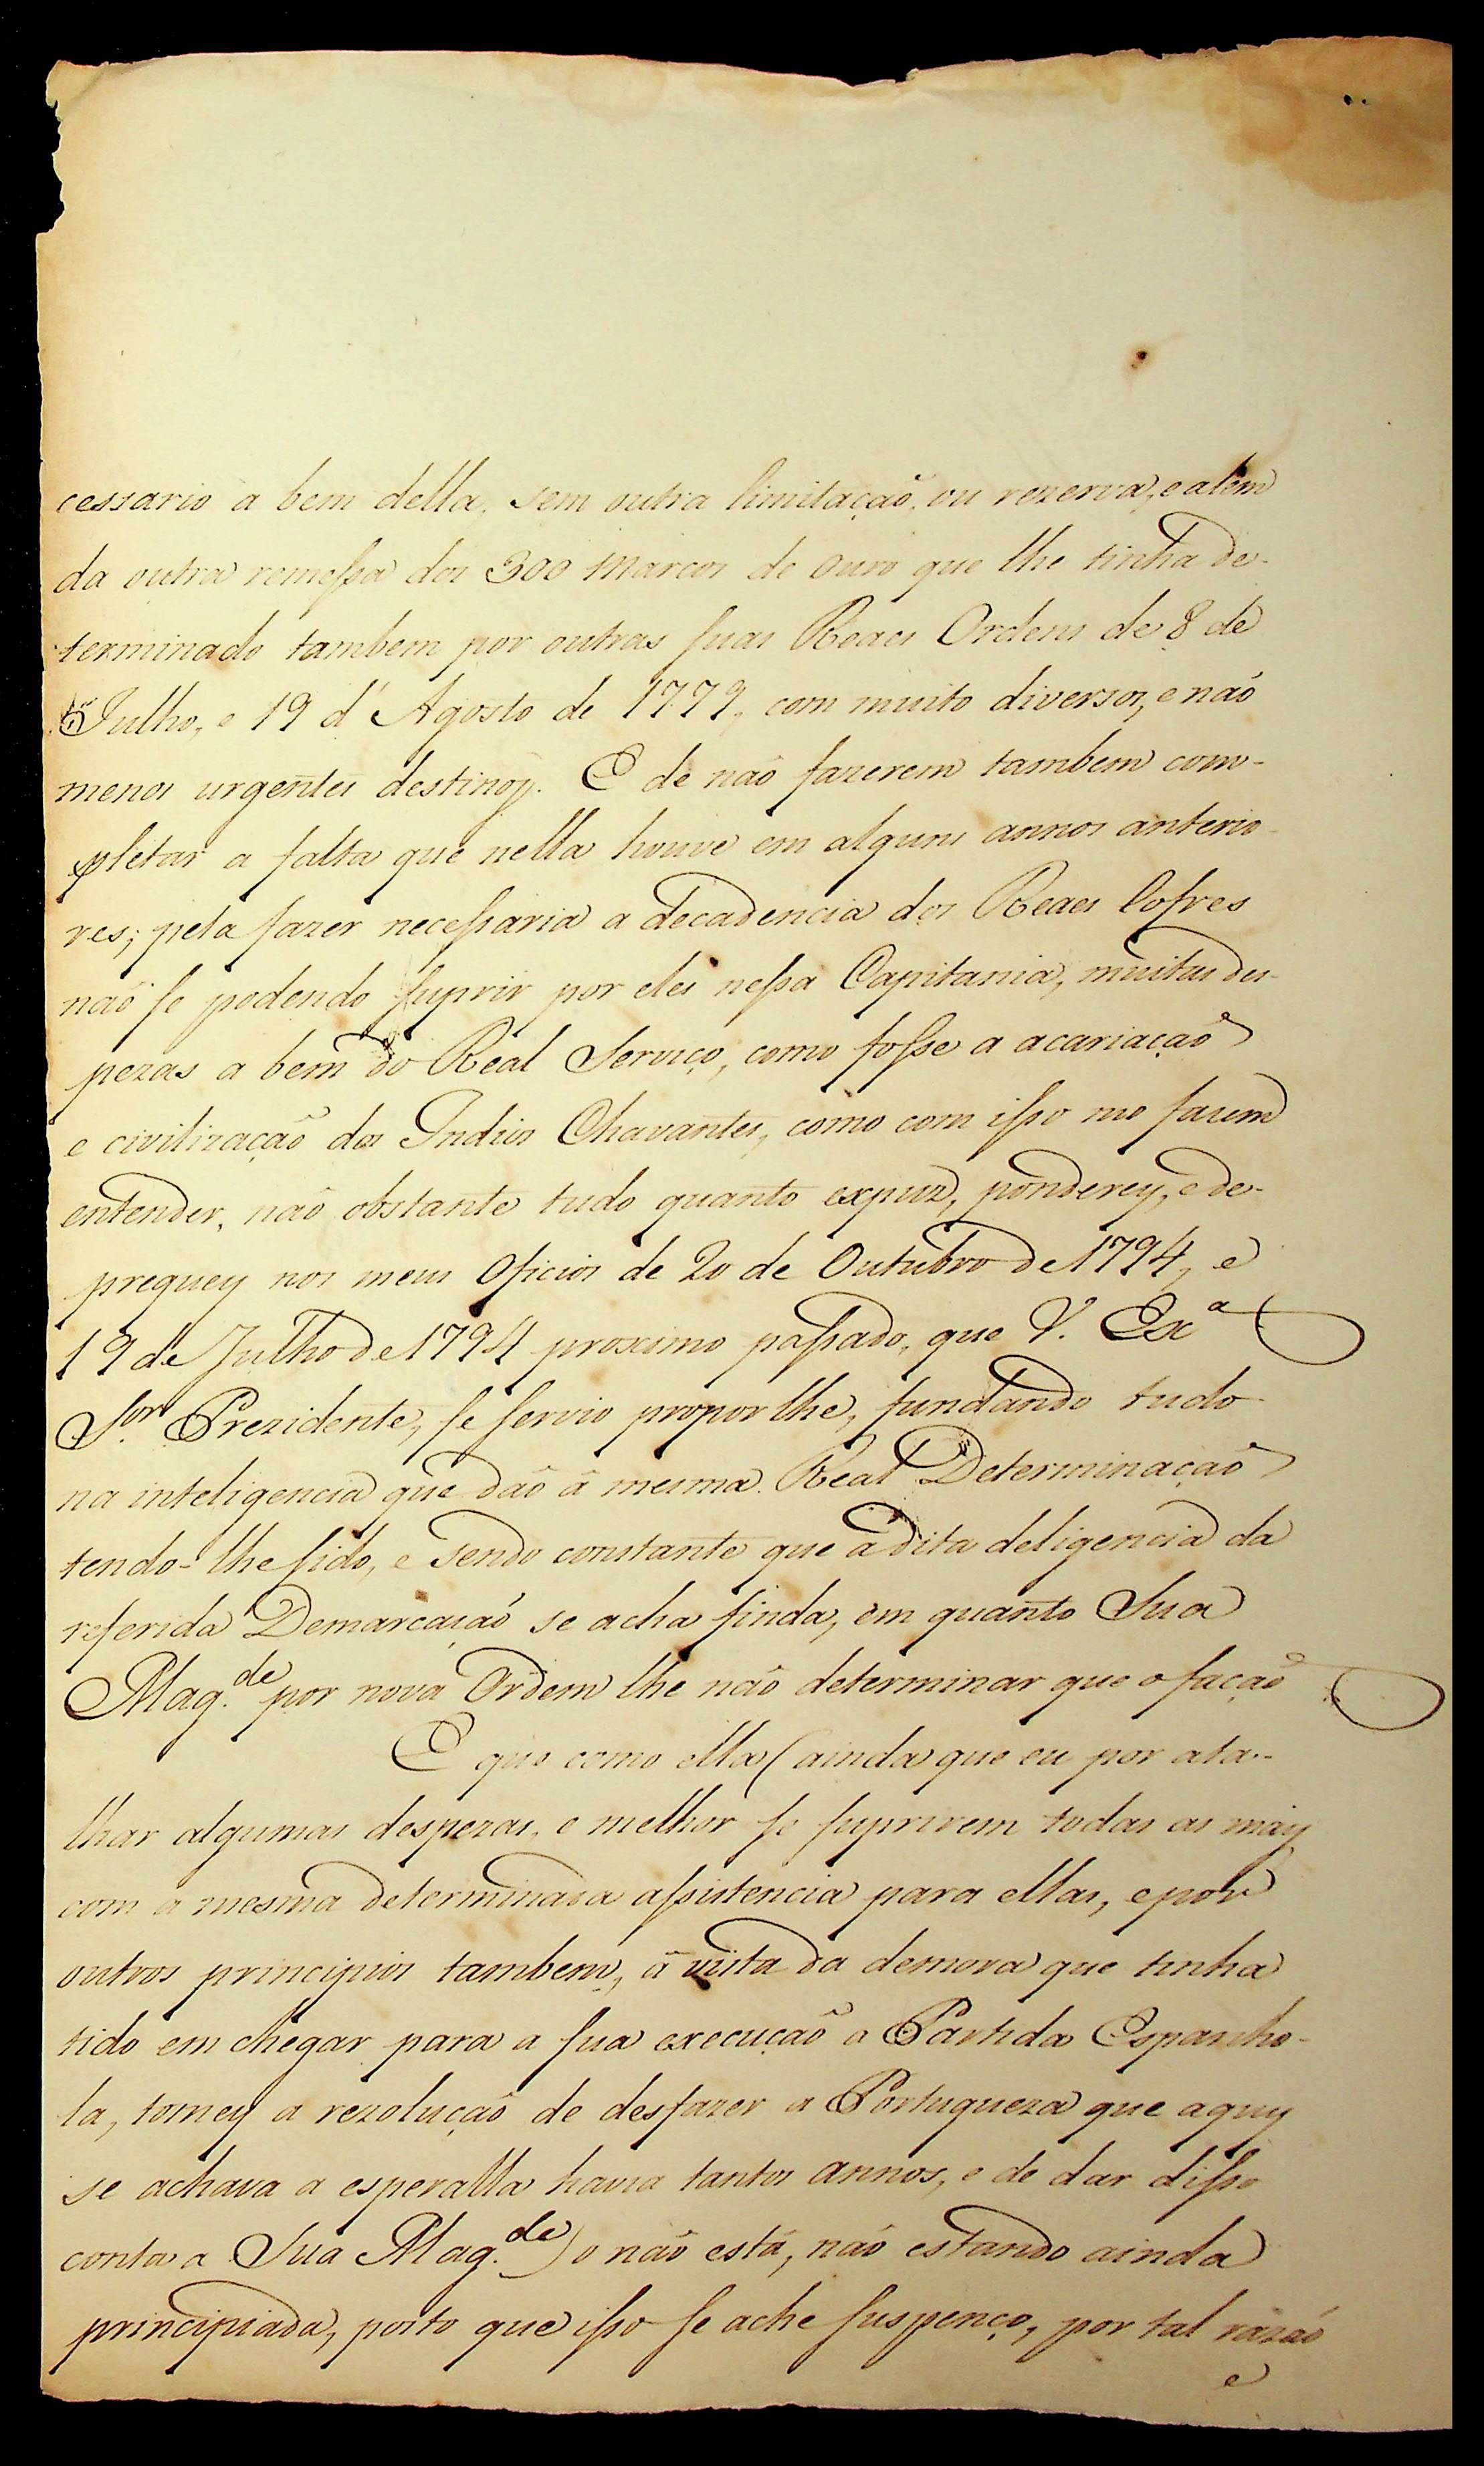 cessario a bem della, sem outra limitação, ou rezerva, e alem
da outra remessa dos 300 Marcos de Ouro que lhe tinha de-
terminado tambem por outras suas Reaes Ordens de 8 de
Julho, e 19 d'Agosto de 1779, com muito diversos, e não
menos urgentes destinos. E de não fazerem tambem com-
pletar a falta que nella houve em alguns annos anterio-
res; pela fazer necessaria a decadencia dos Reaes Cofres
não se podendo suprir por eles nessa Capitania, muitas des-
pezas a bem do Real Serviço, como fosse a acariação
e civilização dos Indios Chavantes, como com isso me fazem
entender, não obstante tudo quanto expuz, ponderey, e de-
preguey nos meus Oficios de 20 de Outubro de 1794, e
19 de Julho de 1794 proximo passado, que V. Exª
Sor. Prezidente, se servio propor lhe, fundando tudo
na inteligencia que dão â mesma Real Determinação
tendo-lhe sido, e sendo constante que a dita deligencia da
referida Demarcação se acha finda, em quanto Sua
Mag.de por nova Ordem lhe não determinar que o fação
E que como ella (ainda que eu por ata-
lhar algumas despezas, e melhor se suprirem todas as mais
com a mesma determinada assistencia para ellas, e por
outros principios tambem, â vista da demora que tinha
tido em chegar para a sua execução a Partida Espanho-
la, tomey a rezolução de desfazer a Portugueza que aquy
se achava a esperalla havia tantos annos, e de dar disso
conta a Sua Mag.de) o não está, não estando ainda
principiada, posto que isso se ache suspenço, por tal razão
e